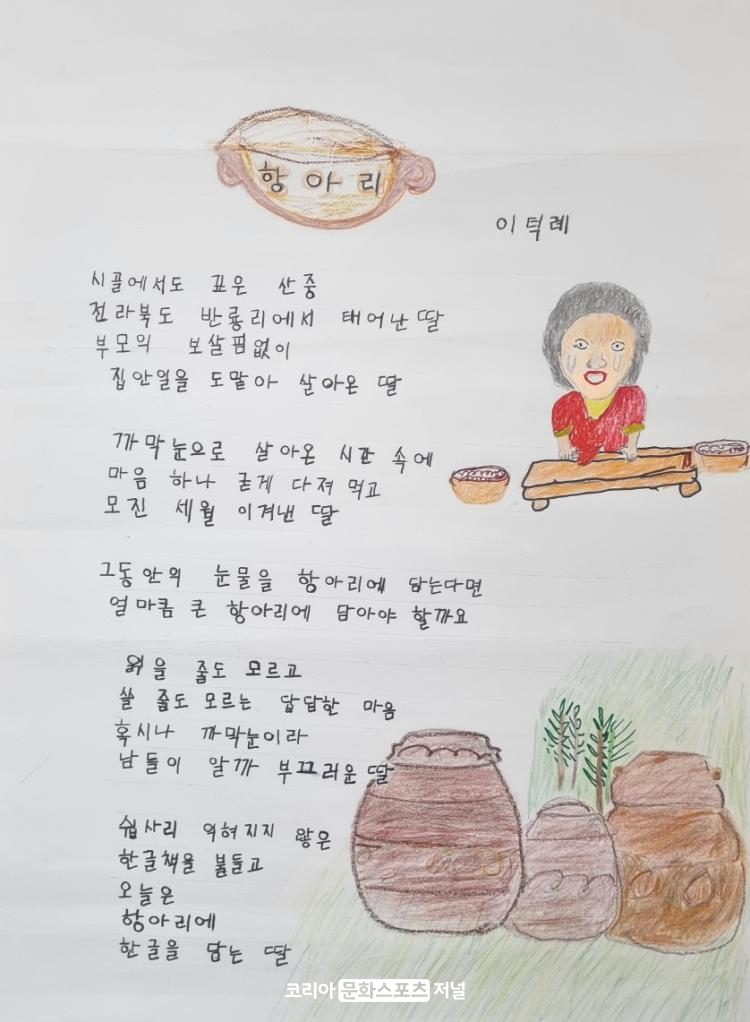 항아리
이턱례
시골에서도 깊은 산중
전라북도 반룡리에서 태어난 딸
부모의 보살핌없이
집안일을 도맡아 살아온 딸
까막눈으로 살아온 시간 속에
마음 하나 굳게 다져 먹고
모진 세월 이겨낸 딸
그동안의 눈물을 항아리에 담는다면
얼마큼 큰 항아리에 담아야 할까요
읽을 줄도 모르고
쓸 줄도 모르는 답답한 마음
혹시나 까막눈이라
남들이 알까 부끄러운 딸
쉽사리 익혀지지 않은
한글책을 붙들고
오늘은
항아리에
한글을 담는 딸
코리아 문화스포츠 저널